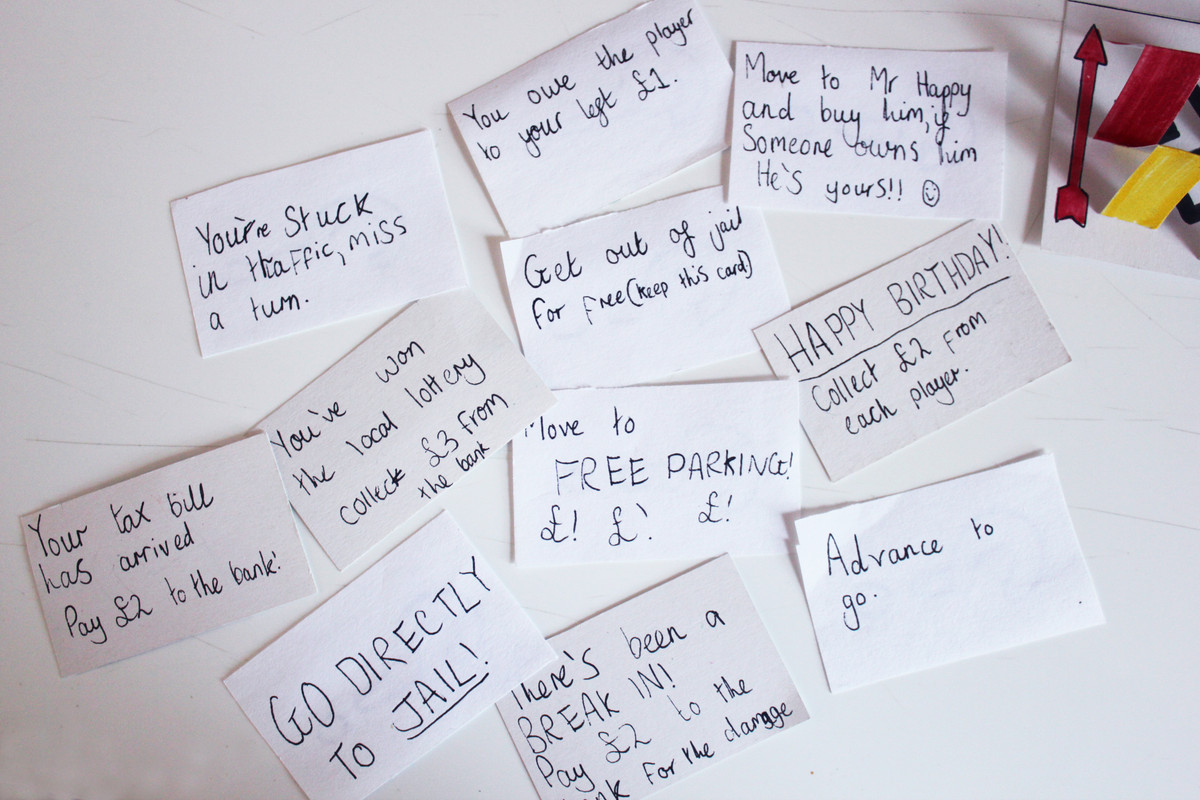 You owe the player
to your left £1.
Move to Mr Happy
and buy him, if
Someone owns him
He's yours!!
You're Stuck
in traffic, miss
a turn.
Get out of jail
for free (keep this card)
HAPPY BIRTHDAY!
Collect £2 from
each player.
You've won
the local lottery
collect £3 from
the bank
Move to
FREE PARKING!
£! £! £!
Your tax bill
has arrived
Pay £2 to the bank!
Advance to
go.
GO DIRECTLY
TO JAIL!
There's been a
BREAK IN!
Pay £2 to the
bank for the damage